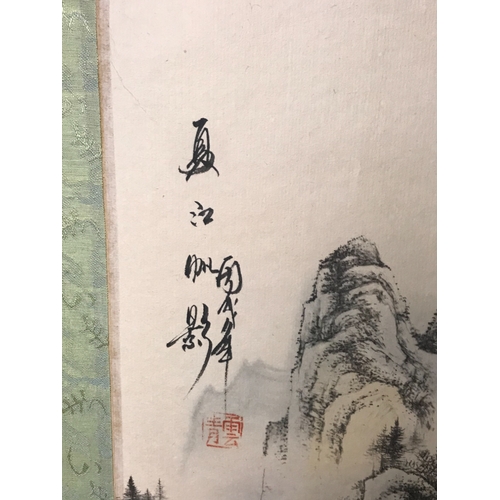 夏江帆影
丙戌年
雲青